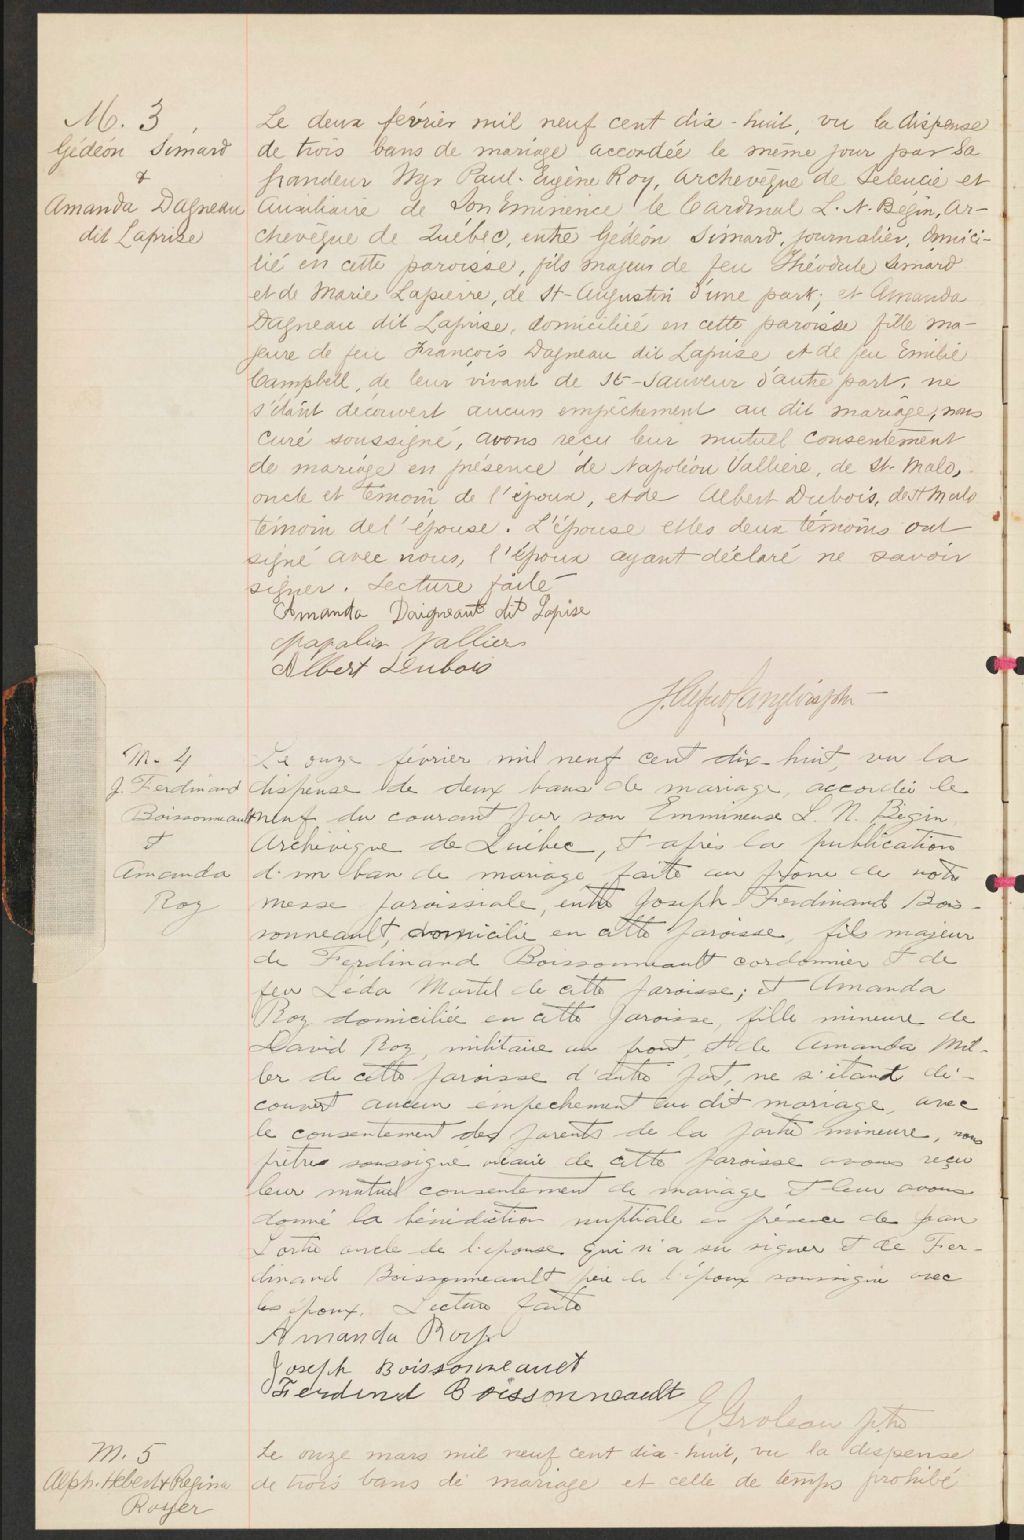 M. 3
Gédéon Simard
&
Amanda Dagneau
dit Laprise
Le deux février mil neuf cent dix-huit, vu la dispense
de trois bans de mariage accordée le même jour par Sa
Grandeur Mgr Paul-Eugène Roy, archevêque de Séleucie et
Auxiliaire de Son Eminence le Cardinal L. N. Bégin, Ar-
chevêque de Québec, entre Gédéon Simard, journalier, domici-
lié en cette paroisse, fils majeur de feu Théodule Simard
et de Marie Lapierre, de St-Augustin d'une part; et Amanda
Dagneau dit Laprise, domiciliée en cette paroisse fille ma-
jeure de feu François Dagneau dit Laprise et de feu Emilie
Campbell, de leur vivant de St-Sauveur d'autre part, ne
s'étant découvert aucun empêchement au dit mariage, nous
curé soussigné, avons reçu leur mutuel consentement
de mariage en présence de Napoléon Vallière, de St-Malo,
oncle et témoin de l'époux, et de Albert Dubois, de St Malo
témoin de l'épouse. L'épouse et les deux témoins ont
signé avec nous, l'époux ayant déclaré ne savoir
signer. Lecture faite
Amanda Daigneault dit Lapise
Vallier
Albert Dubois
M. 4
J. Ferdinand
Boissonneault
et
Amanda
Roy
Le onze février mil neuf cent dix-huit, vu la
dispense de deux bans de mariage, accordée le
neuf du courant par son Emmineuse L. N. Bégin
Archévêque de Québec, et après la publication
d'un ban de mariage faite au prône de notre
messe paroissiale, entre Joseph Ferdinand Bois-
sonneault, domicilié en cette paroisse, fils majeur
de Ferdinand Boissonneault cordonnier et de
feu Léda Martel de cette paroisse; et Amanda
Roy domiciliée en cette paroisse, fille mineure de
David Roy, militaire au front, et de Amanda Mil-
ler de cette paroisse d'autre part, ne s'étant dé-
couvert aucun empêchement au dit mariage, avec
le consentement des parents de la partie mineure, nous
prêtre soussigné vicaire de cette paroisse avons reçu
leur mutuel consentement de mariage et leur avons
donné la bénédiction nuptiale en présence de Jean
Lortie oncle de l'épouse qui n'a su signer et de Fer-
dinand Boissonneault père de l'époux soussigné avec
les époux. Lecture faite
Amanda Roy
Joseph Boissonneault
Ferdinand Boissonneault
E. Groleau ptre
M. 5
Alph. Hébert & Regina
Royer
Le onze mars mil neuf cent dix-huit, vu la dispense
de trois bans de mariage et celle de temps prohibé